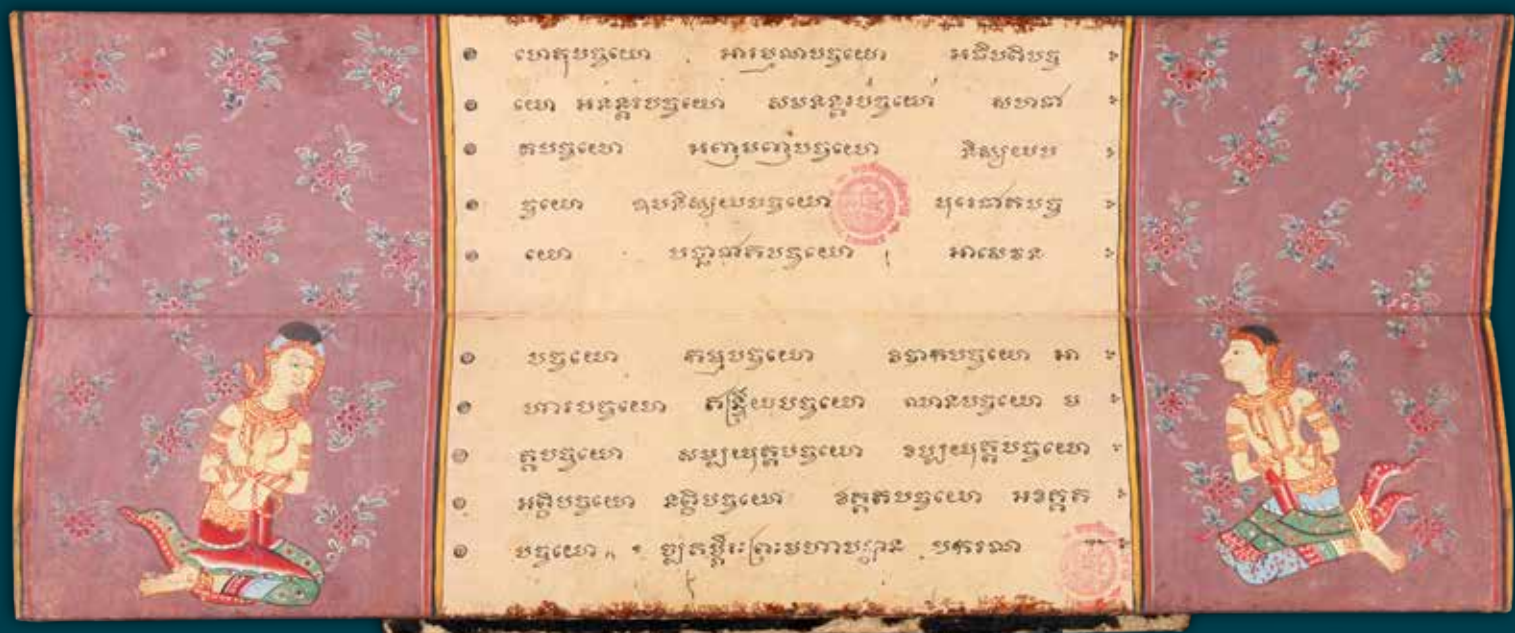 ហេតុបច្ចយោ អារម្មណបច្ចយោ អធិបតិបច្ច
យោ អនន្តរបច្ចយោ សមនន្តរបច្ចយោ សហជា
តបច្ចយោ អញ្ញមញ្ញបច្ចយោ និស្សយប
ច្ចយោ ឧបនិស្សយបច្ចយោ បុរេជាតបច្ច
យោ បច្ឆាជាតបច្ចយោ អាសេវន
បច្ចយោ កម្មបច្ចយោ វិបាកបច្ចយោ អា
ហារបច្ចយោ ឥន្ទ្រិយបច្ចយោ ឈានបច្ចយោ ម
គ្គបច្ចយោ សម្បយុត្តបច្ចយោ វិប្បយុត្តបច្ចយោ
អត្ថិបច្ចយោ នត្ថិបច្ចយោ វិគ្គតបច្ចយោ អវិគ្គត
បច្ចយោ ព្រះមហាបដ្ឋាន បករណ